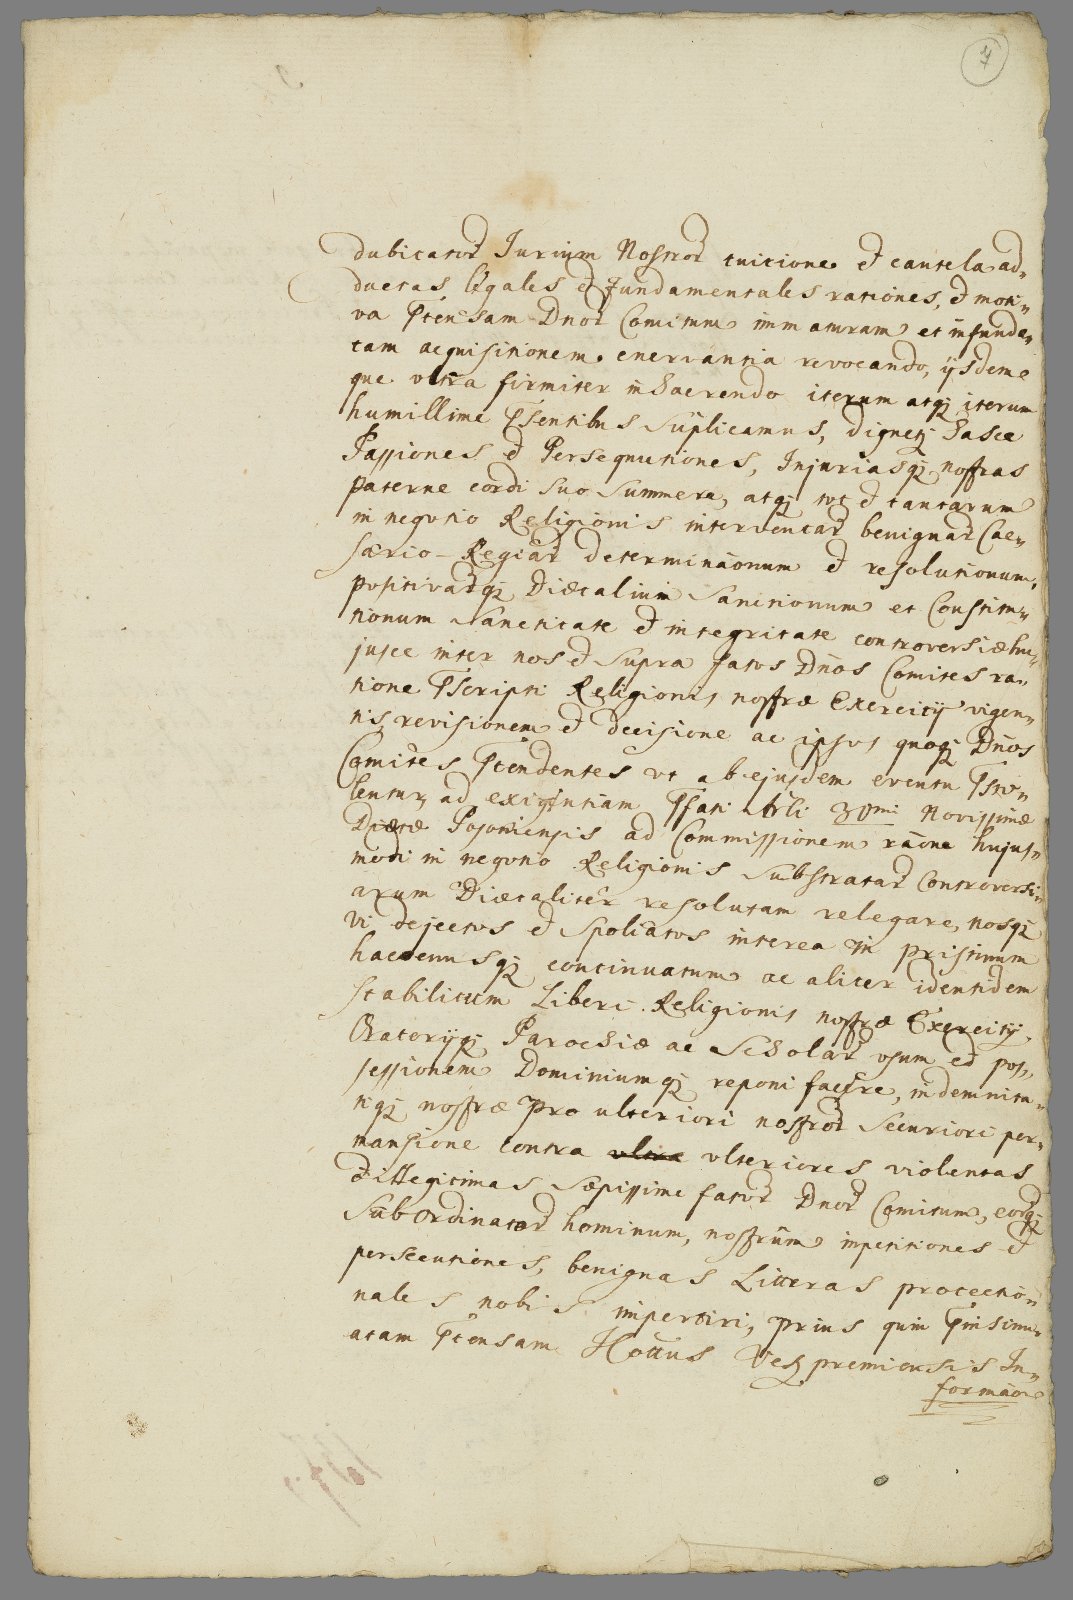 7
dubicator Jurium Nostror tuitione et cautela ad-
ductas légales et fundamentales rationes, et moti-
va Ptensam Dnor Comitum immaturam et infunda-
tam acquisitionem enervantia revocando, ijsdem-
que ultra firmiter inhaerendo iterum atq iterum
humillime Psentibus supplicamus, dignetj hasce
Passiones et Persequutiones, Injuriasq nostras
paterne cordi suo summere, atq tot et tantarum
in negotio Religionis interventar benignar Cae-
sareo-Regiar determinaonum et resolutionum,
positivarq Diaetalium Sanctionum et Constitu-
tionum Sanctitate et integritate controversiae hu-
jusce inter nos et supra fatos Dnos Comites ra-
tione Pscripti Religionis nostrae Exercitij vigen-
tis, revisionem et decisione ac ipsos quoq Dnos
Comites Ptendentes ut ab ejusdem eventu Psto-
lentur, ad exigentiam Pfati Arli 30mi Novissimae
Diaetae Posoniensis ad Commissionem raone hujus-
modi in negotio Religionis substratar Controversi-
arum Diaetaliter resolutam relegare, nosq
vi dejectos et spoliatos interea in pristinum
hactenusq continuatum ac aliter identidem
stabilitum Liberi Religionis nostrae Exercitij,
Oratorijq Parochiae ac Scholar usum et pos-
sessionem Dominiumq reponi facere, indemnita-
tiq nostrae pro ulteriori nostror securiori per-
mansione contra ultra ulteriores violentas
et illegitimas saepissime fator Dnor Comitum, eorq
Subordinator hominum, nostrum impetitiones et
persecutiones, benignas Litteras protectio-
nales nobis impertiri, prius quin Pinsinu-
atam Ptensam Hottus Veszpremiensis In-
formaone